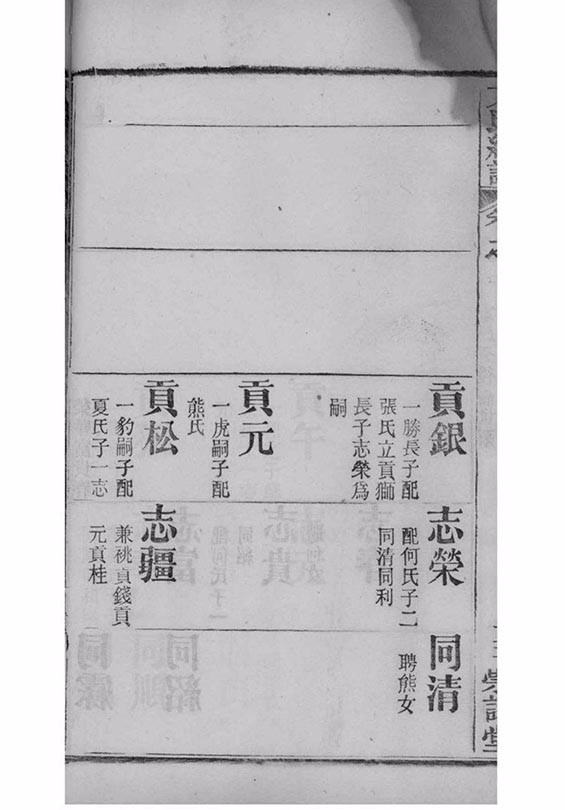 貢銀
一勝長子配
張氏立貢獅
長子志榮爲
嗣
貢元
一虎嗣子配
熊氏
貢松
一豹嗣子配
夏氏子一志
志榮
配何氏子二
同清同利
志疆
兼祧貢錢貢
元貢桂
同清
聘熊女